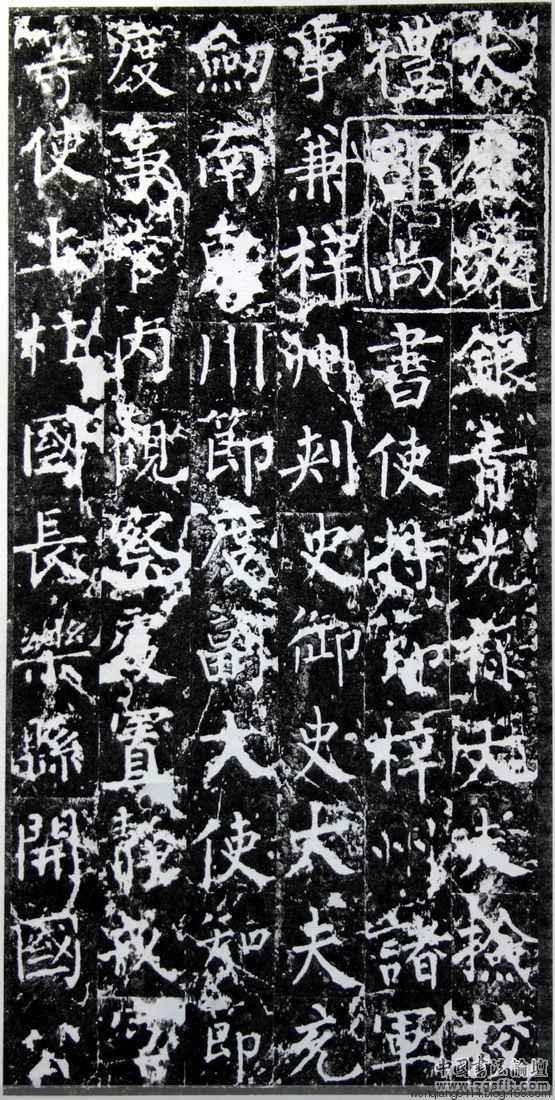 大唐故銀青光祿大夫檢校
禮部尚書使持節梓州諸軍
事兼梓州刺史御史大夫充
劍南東川節度副大使知節
度事管內觀察處置靜戎
等使上柱國長樂縣開國公
中国書法論壇
www.zgsflt.com